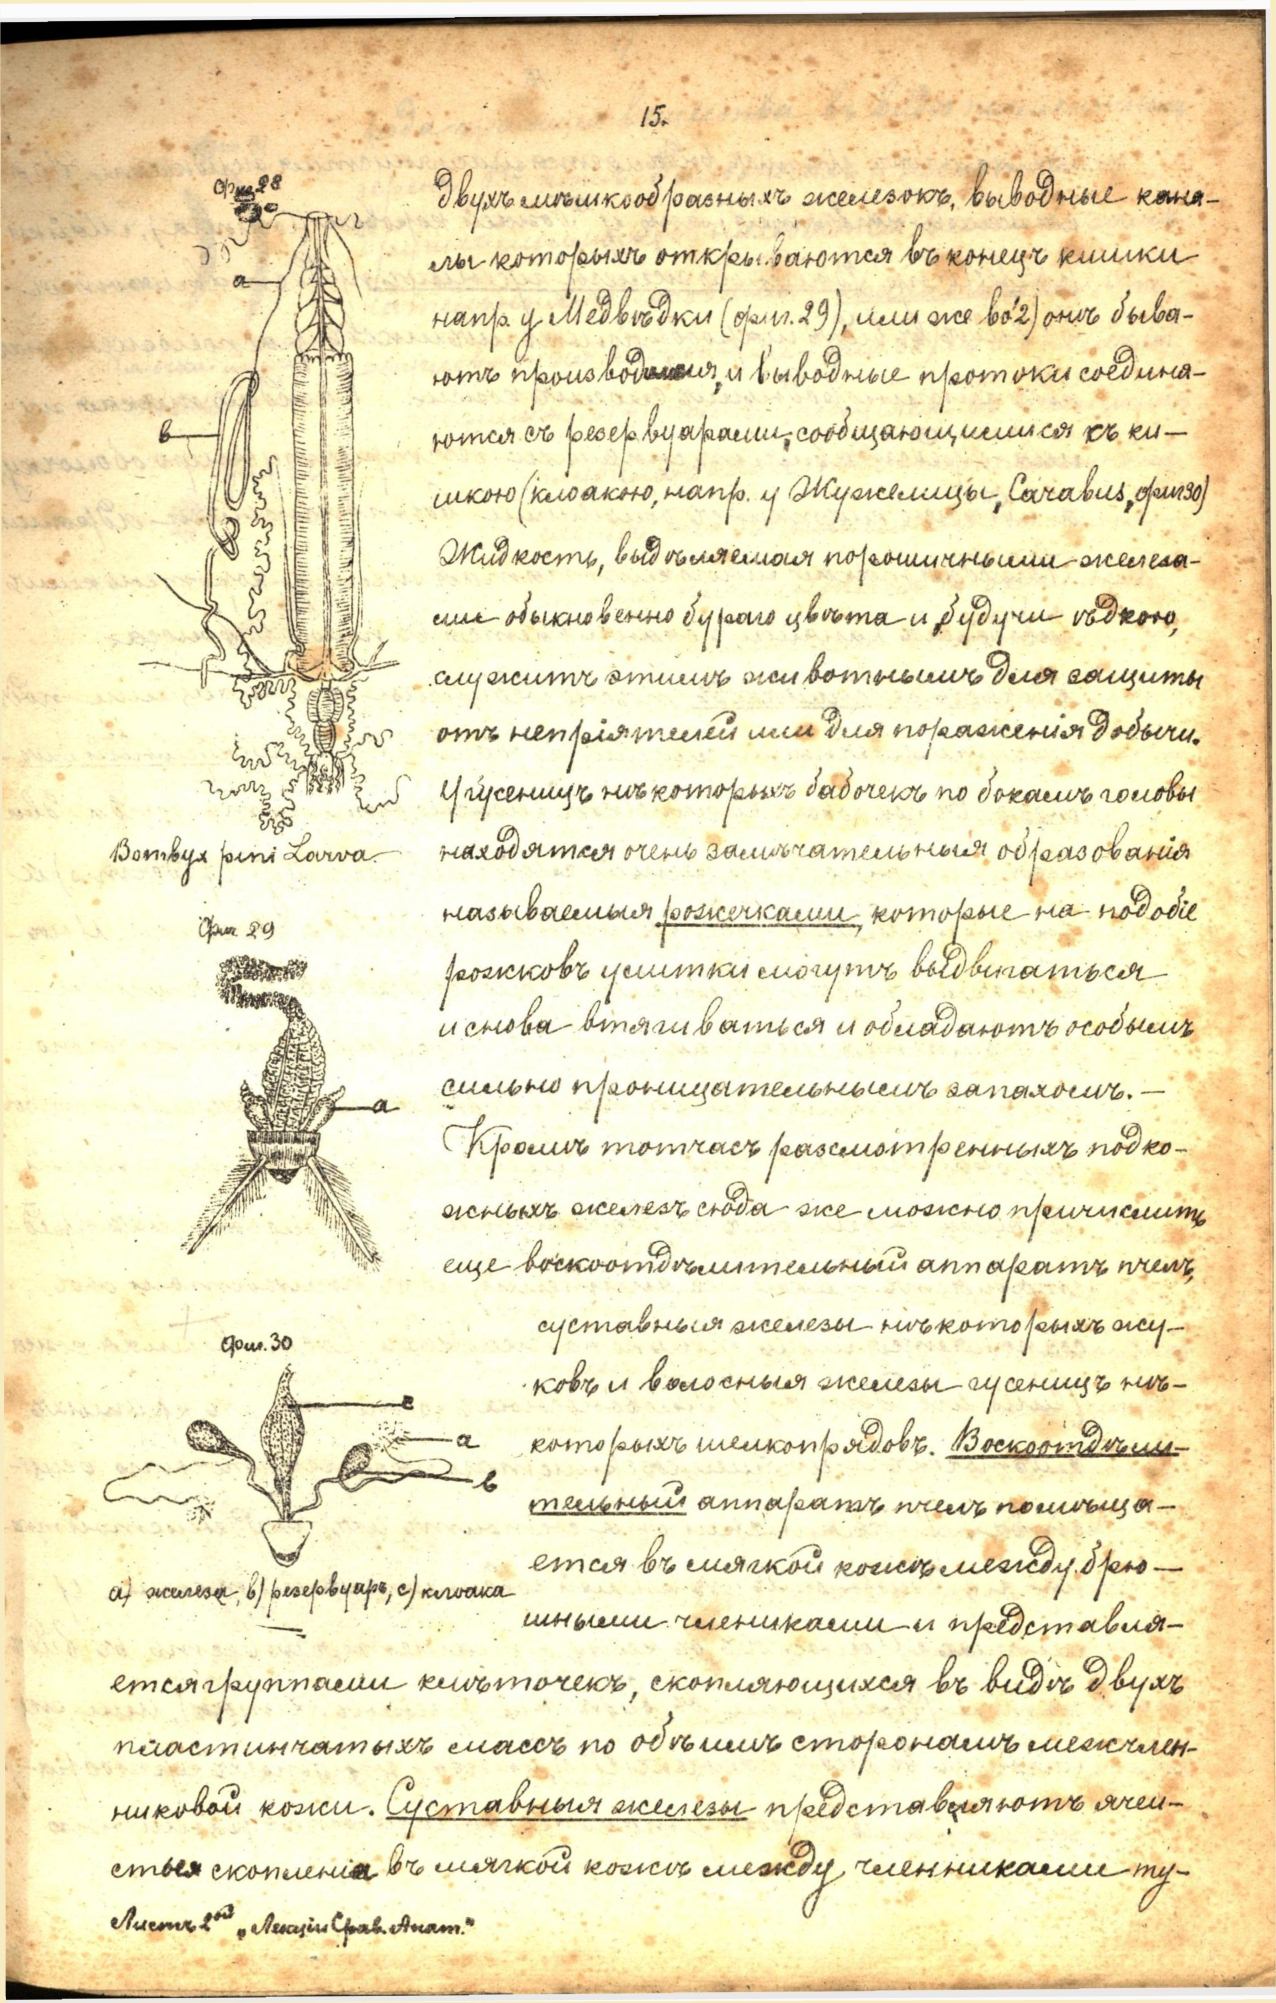 15.
Фиг 28
двухъ мѣшкообразныхъ железокъ, выводные кана-
лы которыхъ открываются въ конецъ кишки
а
напр. у Медвѣдки (фиг. 29), или же во 2) онѣ быва-
ютъ и выводные протоки соединя-
в
ются съ резервуарами, сообщающимися къ ки-
шкою (клоакою, напр. у Жужелицы, Carabus, фиг 30)
Жидкость, выдѣляемая порошичными железа-
ми обыкновенно бураго цвѣта и, будучи ѣдкою,
служитъ этимъ животнымъ для защиты
отъ непріятелей или для пораженія добычи.
У гусеницъ нѣкоторыхъ бабочекъ по бокамъ головы
Bombyx pini Larva.
находятся очень замѣчательныя образованія
называемыя рожечками, которые на подобіе
Фиг 29
рожковъ улитки могутъ выдвигаться
и снова втягиваться и обладаютъ особымъ
сильно проницательнымъ запахомъ. —
а
Кромѣ тотчасъ разсмотренныхъ подко-
жныхъ железъ сюда же можно причислить
еще воскоотдѣлительный аппаратъ пчелъ,
суставныя железы нѣкоторыхъ жу-
Фиг. 30
ковъ и волосныя железы гусеницъ нѣ-
с
которыхъ шелкопрядовъ. Воскоотдѣли-
а
тельный аппаратъ пчелъ помѣща-
в
ется въ мягкой кожѣ между брю-
а) железа, в) резервуаръ, с) клоака
шными члениками и представля-
ется группами клѣточекъ, скопляющихся въ видѣ двухъ
пластинчатыхъ массъ по обѣимъ сторонамъ межчлен-
никовой кожи. Суставныя железы представляютъ ячеи-
стыя скопленія въ мягкой кожѣ между членниками ту-
Листъ 2ой „Лекціи Срав. Анат."